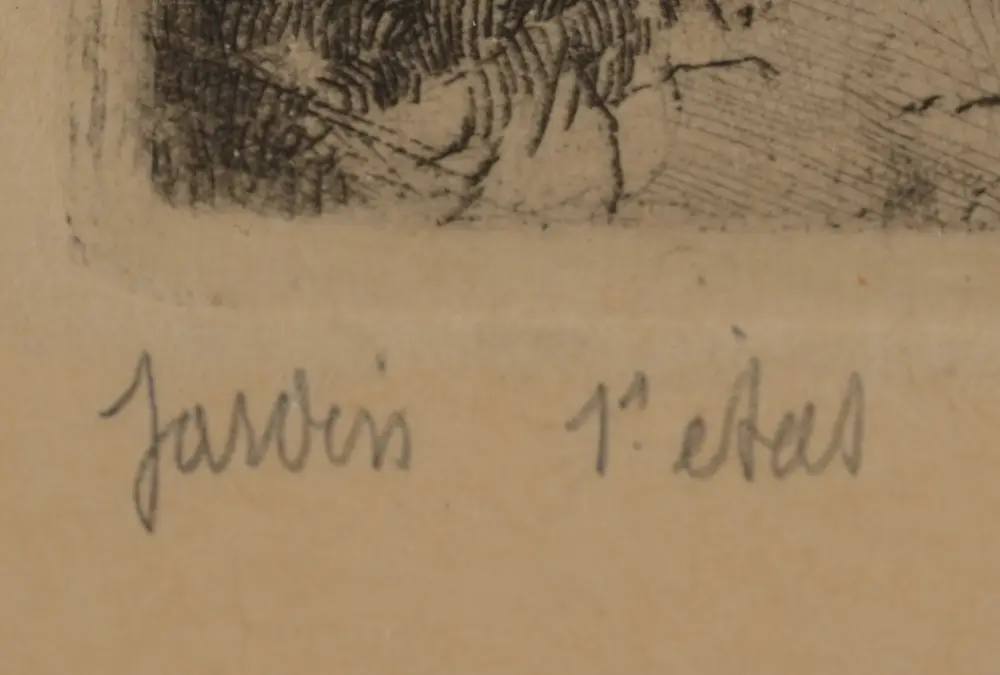 Jardin 1r état